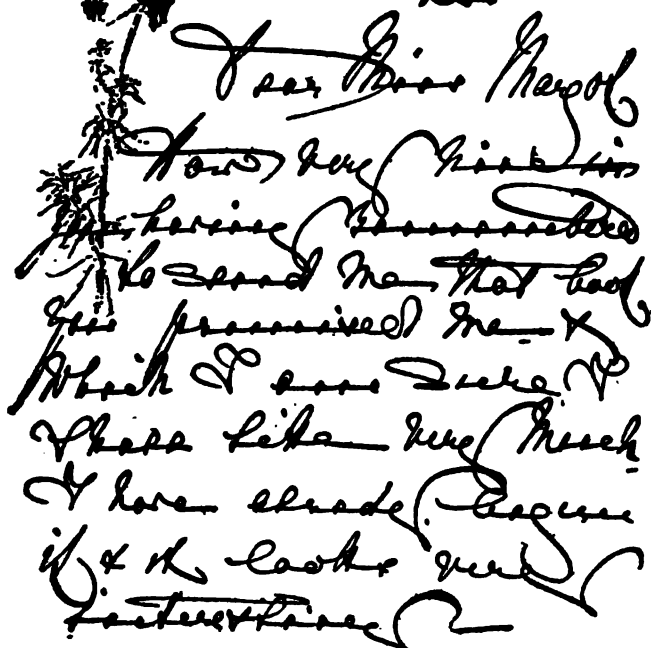 Dear Miss Margot
How very nice in
you having remembered
to send me that book
you promised me &
which I am sure I
shall like very much
I have already begun
it & it looks very
interesting